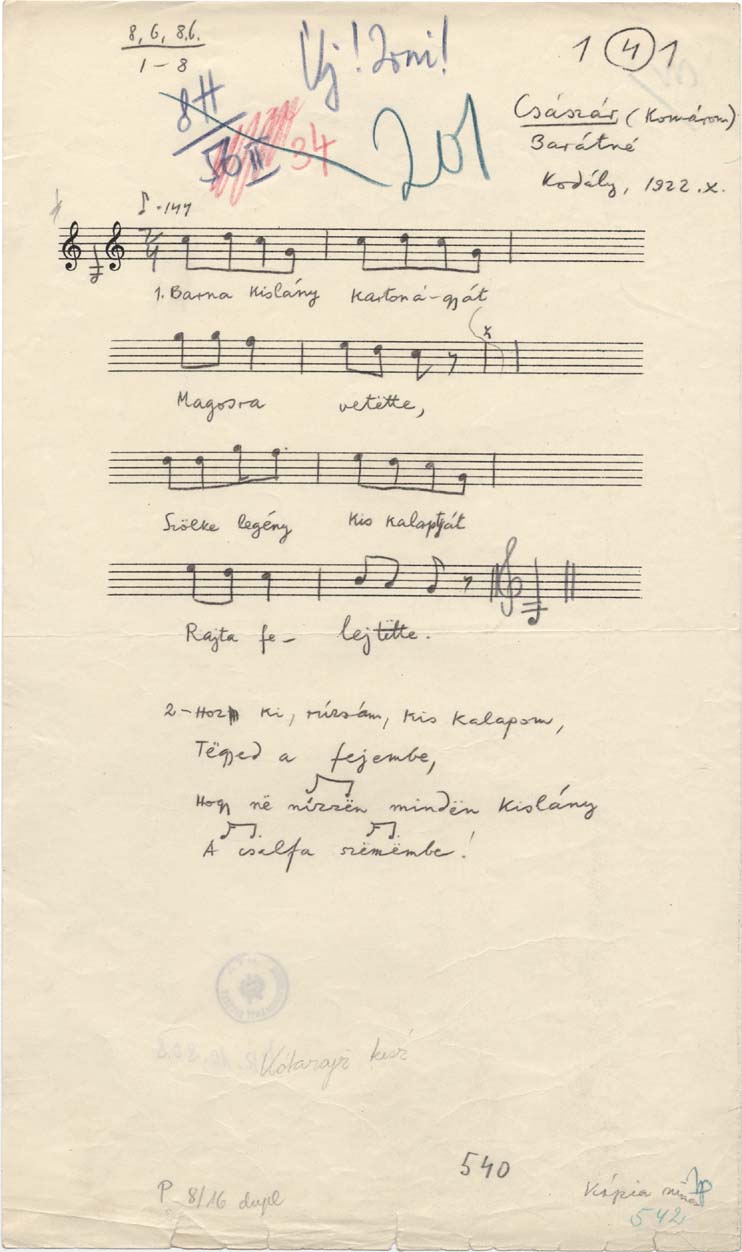 8, 6, 8.6.
1-8
Új!
1 4 1
8II
56II 34
201
Császár (Komárom)
Barátné
Kodály, 1922.X.
♪=144
2/4
1. Barna kislány kartoná-gyját
Magosra vetëtte,
x
Szőke legény kis kalapját
Rajta fe- lejtëtte.
2- Hozd ki, rúzsám, kis kalapom,
Tëgyed a fejembe,
Hogy në nízzën mindën kislány
A csalfa szëmëmbe!
Kótarajz kész
540
P 8/16 dupl
Kópia nincs
542